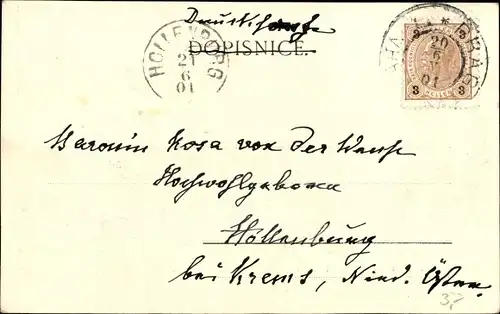 Drucksache
DOPISNICE.
HOLLENBURG
21
6
01
PRAHA PRAG
20
6
01
3 HELLER 3
Baronin Rosa von der Wense
Hochwohlgeboren
Hollenburg
bei Krems, Nied. Österr.
37